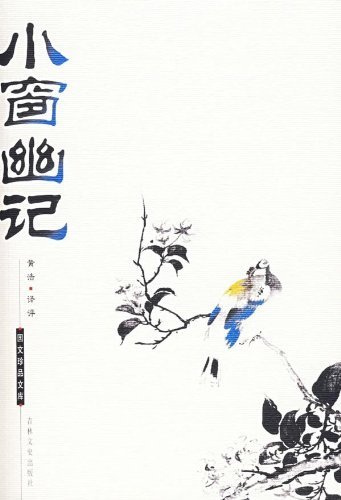 小窗幽记
黄浩·译评
国文珍品文库
吉林文史出版社